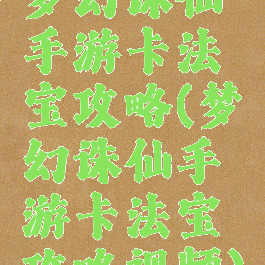 梦幻诛仙
手游卡法
宝攻略(梦
幻诛仙手
游卡法宝
攻略视频)